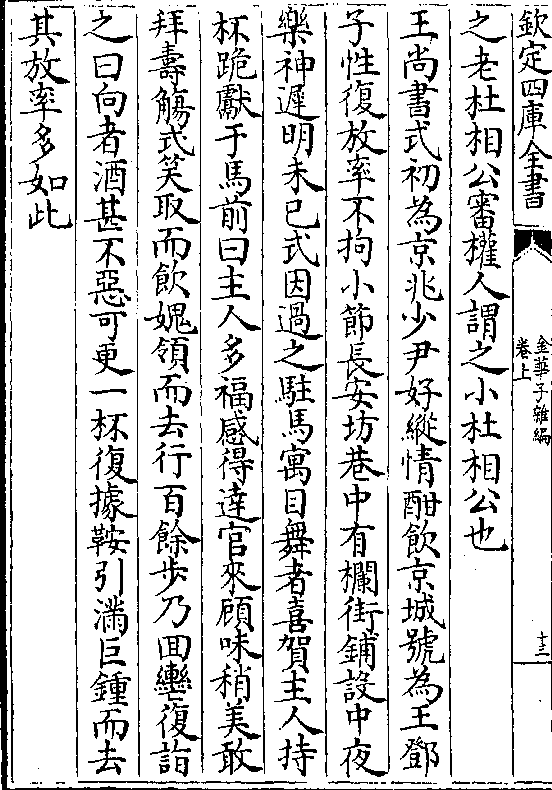 欽定四庫全書
金華子雜編
卷上
十三
之老杜相公審權人謂之小杜相公也
王尚書式初為京兆少尹好縱情酣飲京城號為王鄧
子性復放率不拘小節長安坊巷中有欄街鋪設中夜
樂神遲明未已式因過之駐馬寓目舞者喜賀主人持
杯跪獻于馬前曰主人多福感得達官來顧味稍美敢
拜壽觴式笑取而飲媿領而去行百餘步乃回轡復詣
之曰向者酒甚不惡可更一杯復據鞍引滿巨鍾而去
其放率多如此